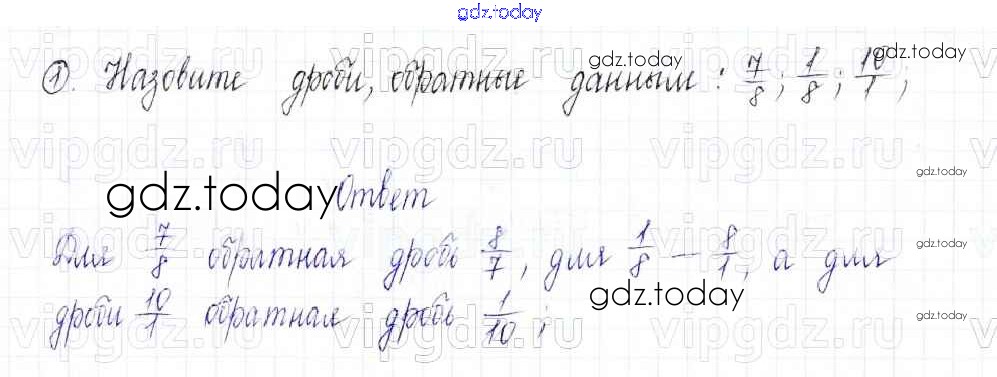 gdz.today
①. Назовите дроби, обратные данным: 7/8; 1/8; 10/1;
gdz.today
gdz.today
vipgdz.ru
gdz.today
Ответ
gdz.today
Для 7/8 обратная дробь 8/7, для 1/8 – 8/1, а для
gdz.today
gdz.today
дроби 10/1 обратная дробь 1/10;
gdz.today
vipgdz.ru